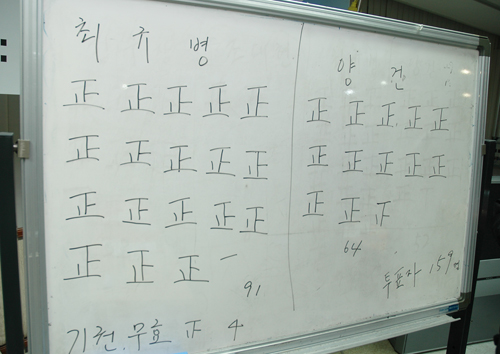 최 규 병
正 正 正 正 正
正 正 正 正 正
正 正 正 正 正
正 正 正 一
91
기권.무효 正 4
양 건
正 正 正 正 正
正 正 正 正 正
正 正 正
64
투표자 159명